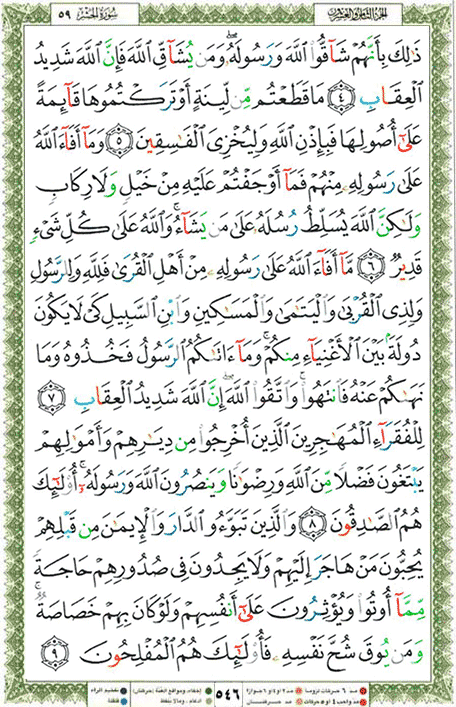 الجزء الثامن والعشرون
سورة الحشر ٥٩
ذَٰلِكَ بِأَنَّهُمْ شَآقُّوا۟ ٱللَّهَ وَرَسُولَهُۥ ۖ وَمَن يُشَآقِّ ٱللَّهَ فَإِنَّ ٱللَّهَ شَدِيدُ
ٱلْعِقَابِ ٤ مَا قَطَعْتُم مِّن لِّينَةٍ أَوْ تَرَكْتُمُوهَا قَآئِمَةً
عَلَىٰٓ أُصُولِهَا فَبِإِذْنِ ٱللَّهِ وَلِيُخْزِىَ ٱلْفَٰسِقِينَ ٥ وَمَآ أَفَآءَ ٱللَّهُ
عَلَىٰ رَسُولِهِۦ مِنْهُمْ فَمَآ أَوْجَفْتُمْ عَلَيْهِ مِنْ خَيْلٍ وَلَا رِكَابٍ
وَلَٰكِنَّ ٱللَّهَ يُسَلِّطُ رُسُلَهُۥ عَلَىٰ مَن يَشَآءُ ۚ وَٱللَّهُ عَلَىٰ كُلِّ شَىْءٍ
قَدِيرٌ ٦ مَّآ أَفَآءَ ٱللَّهُ عَلَىٰ رَسُولِهِۦ مِنْ أَهْلِ ٱلْقُرَىٰ فَلِلَّهِ وَلِلرَّسُولِ
وَلِذِى ٱلْقُرْبَىٰ وَٱلْيَتَٰمَىٰ وَٱلْمَسَٰكِينِ وَٱبْنِ ٱلسَّبِيلِ كَىْ لَا يَكُونَ
دُولَةًۢ بَيْنَ ٱلْأَغْنِيَآءِ مِنكُمْ ۚ وَمَآ ءَاتَىٰكُمُ ٱلرَّسُولُ فَخُذُوهُ وَمَا
نَهَىٰكُمْ عَنْهُ فَٱنتَهُوا۟ ۚ وَٱتَّقُوا۟ ٱللَّهَ ۖ إِنَّ ٱللَّهَ شَدِيدُ ٱلْعِقَابِ ٧
لِلْفُقَرَآءِ ٱلْمُهَٰجِرِينَ ٱلَّذِينَ أُخْرِجُوا۟ مِن دِيَٰرِهِمْ وَأَمْوَٰلِهِمْ
يَبْتَغُونَ فَضْلًا مِّنَ ٱللَّهِ وَرِضْوَٰنًا وَيَنصُرُونَ ٱللَّهَ وَرَسُولَهُۥٓ ۚ أُو۟لَٰٓئِكَ
هُمُ ٱلصَّٰدِقُونَ ٨ وَٱلَّذِينَ تَبَوَّءُو ٱلدَّارَ وَٱلْإِيمَٰنَ مِن قَبْلِهِمْ
يُحِبُّونَ مَنْ هَاجَرَ إِلَيْهِمْ وَلَا يَجِدُونَ فِى صُدُورِهِمْ حَاجَةً
مِّمَّآ أُوتُوا۟ وَيُؤْثِرُونَ عَلَىٰٓ أَنفُسِهِمْ وَلَوْ كَانَ بِهِمْ خَصَاصَةٌ ۚ
وَمَن يُوقَ شُحَّ نَفْسِهِۦ فَأُو۟لَٰٓئِكَ هُمُ ٱلْمُفْلِحُونَ ٩
٥٤٦